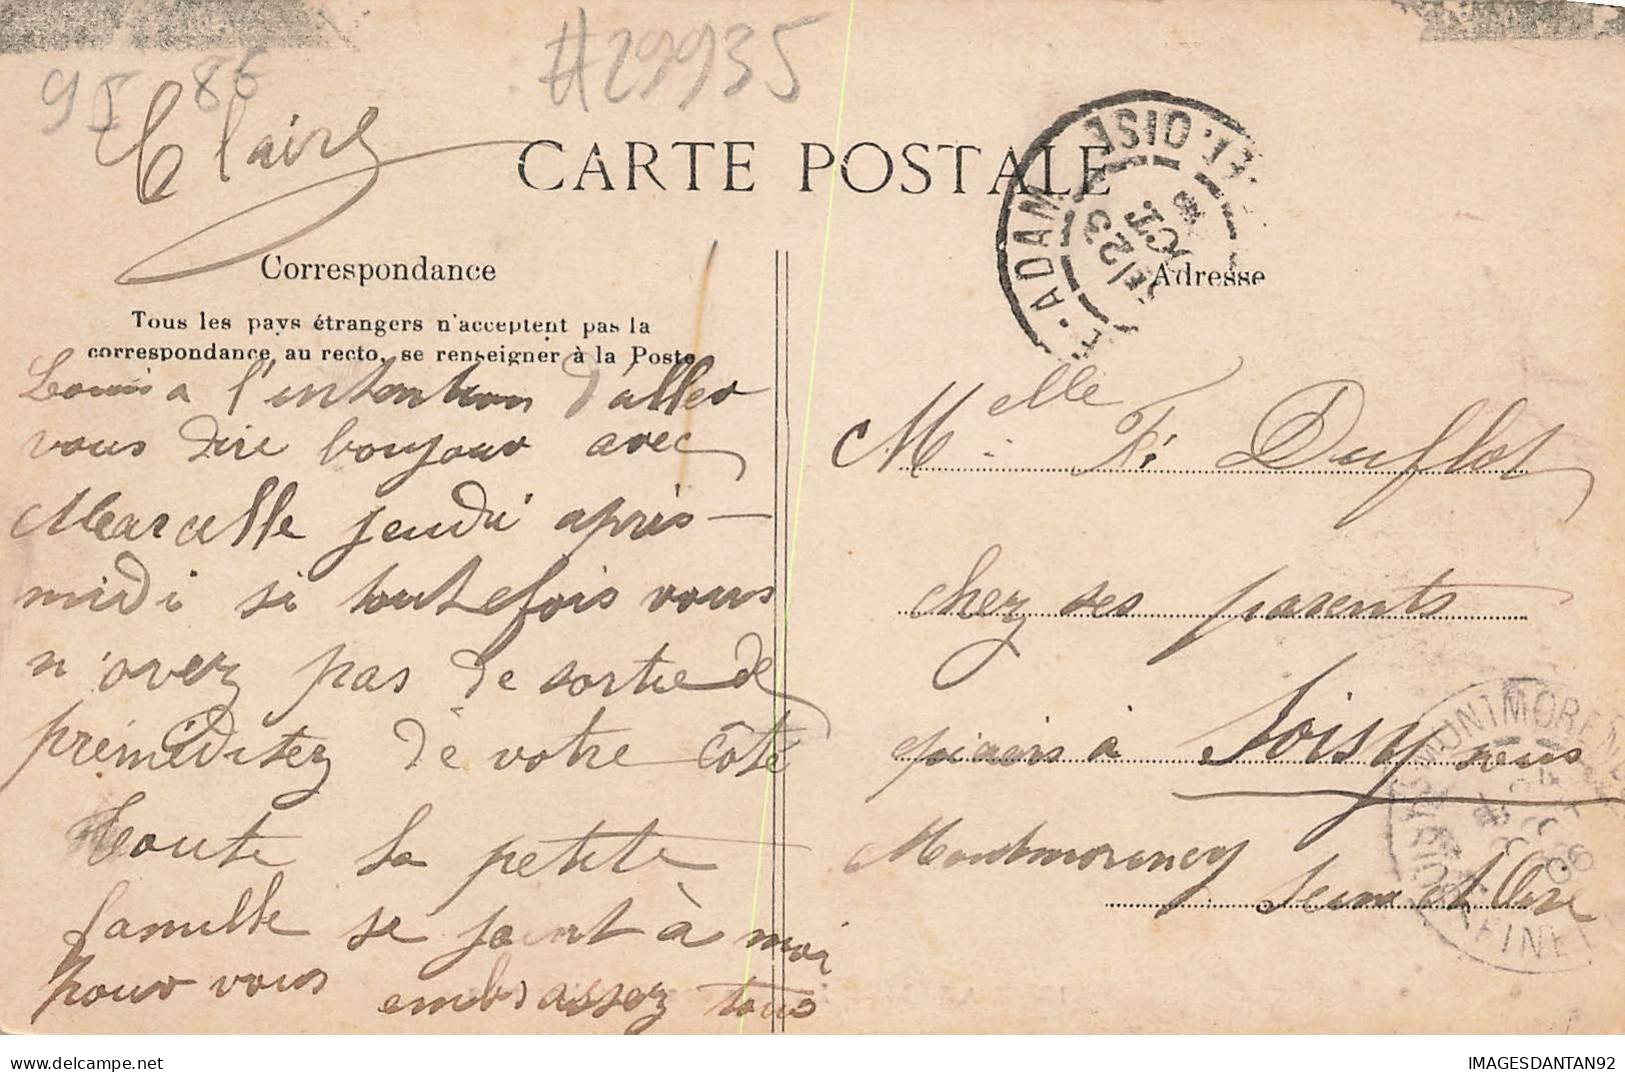 #29935
95 86
Claire
CARTE POSTALE
Correspondance
Tous les pays étrangers n'acceptent pas la
correspondance au recto, se renseigner à la Poste
Louis a l'intention d'aller
vous dire bonjour avec
Marcelle jeudi après-
midi si toutefois vous
n'avez pas de sortie de
préméditez de votre côté
Toute la petite
famille se joint à moi
pour vous embrassez tous
ADAM
ET-OISE
23
OCT
Adresse
Melle F. Duflot
chez ses parents
à Soisy sous
Montmorency
Seine et Oise
SOISY-S-MONTMORENCY
24
06
delcampe.net
IMAGESDANTAN92